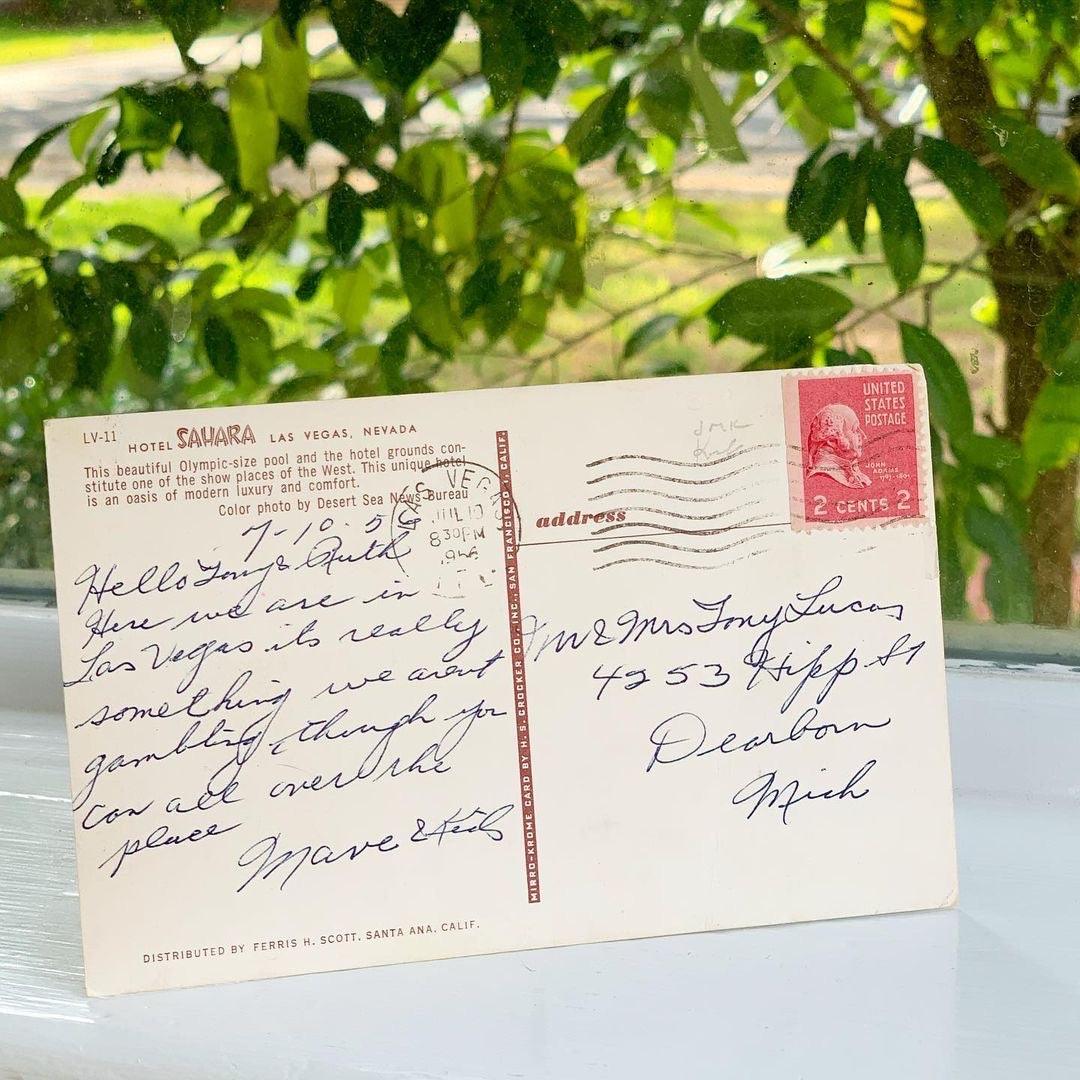 LV-11
HOTEL SAHARA LAS VEGAS, NEVADA
This beautiful Olympic-size pool and the hotel grounds con-
stitute one of the show places of the West. This unique hotel
is an oasis of modern luxury and comfort.
Color photo by Desert Sea News Bureau
7-10-56
Hello Tony & Ruth
Here we are in
Las Vegas its really
something we arent
gambling, though you
can all over the
place
Marve & Kids
DISTRIBUTED BY FERRIS H. SCOTT, SANTA ANA, CALIF.
LAS VEGAS
JUL 10
830PM
1956
MIRRO-KROME CARD BY H. S. CROCKER CO., INC., SAN FRANCISCO 1, CALIF.
JMK
UNITED
STATES
POSTAGE
JOHN
ADAMS
2 CENTS 2
address
Mr & Mrs Tony Lucas
4253 Hipp St
Dearborn
Mich